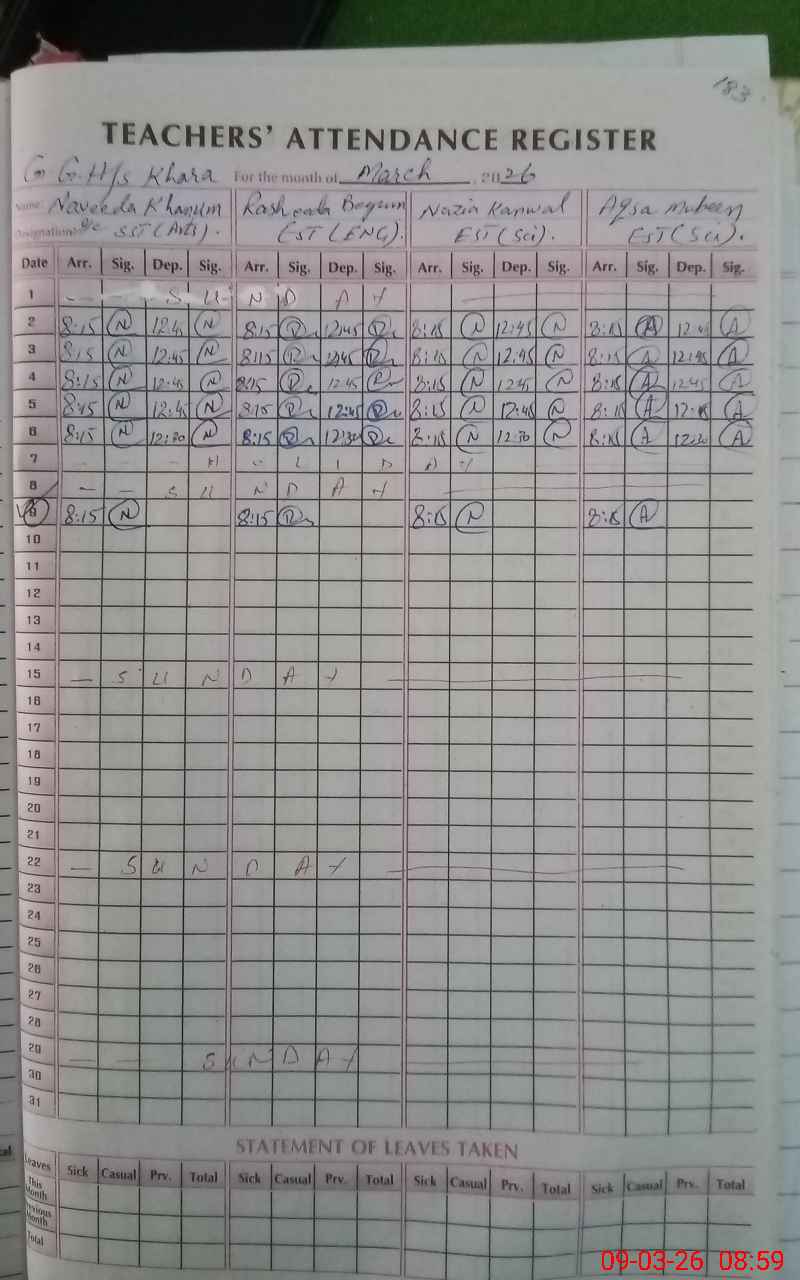 183
TEACHERS' ATTENDANCE REGISTER
G G.H/s Khara For the month of March, 2026
Name: Naveeda Khanum Rasheeda Begum Nazia Kanwal Aqsa Mubeen
Designation: SST (Arts). EST (ENG). EST (Sci). EST (Sci).
Date Arr. Sig. Dep. Sig. Arr. Sig. Dep. Sig. Arr. Sig. Dep. Sig. Arr. Sig. Dep. Sig.
1 — — S U N D A Y
2 8:15 N 12:45 N 8:15 R 12:45 R 8:15 N 12:45 N 8:15 A 12:45 A
3 8:15 N 12:45 N 8:15 R 12:45 R 8:15 N 12:45 N 8:15 A 12:45 A
4 8:15 N 12:45 N 8:15 R 12:45 R 8:15 N 12:45 N 8:15 A 12:45 A
5 8:15 N 12:45 N 8:15 R 12:45 R 8:15 N 12:45 N 8:15 A 12:45 A
6 8:15 N 12:30 N 8:15 R 12:30 R 8:15 N 12:30 N 8:15 A 12:30 A
7 - - - H - L I D A Y
8 — — S U N D A Y
9 8:15 N 8:15 R 8:15 N 8:15 A
10
11
12
13
14
15 — S U N D A Y
16
17
18
19
20
21
22 — S U N D A Y
23
24
25
26
27
28
29 — — S U N D A Y
30
31
STATEMENT OF LEAVES TAKEN
Leaves Sick Casual Prv. Total Sick Casual Prv. Total Sick Casual Prv. Total Sick Casual Prv. Total
This Month
Previous Month
Total
09-03-26 08:59